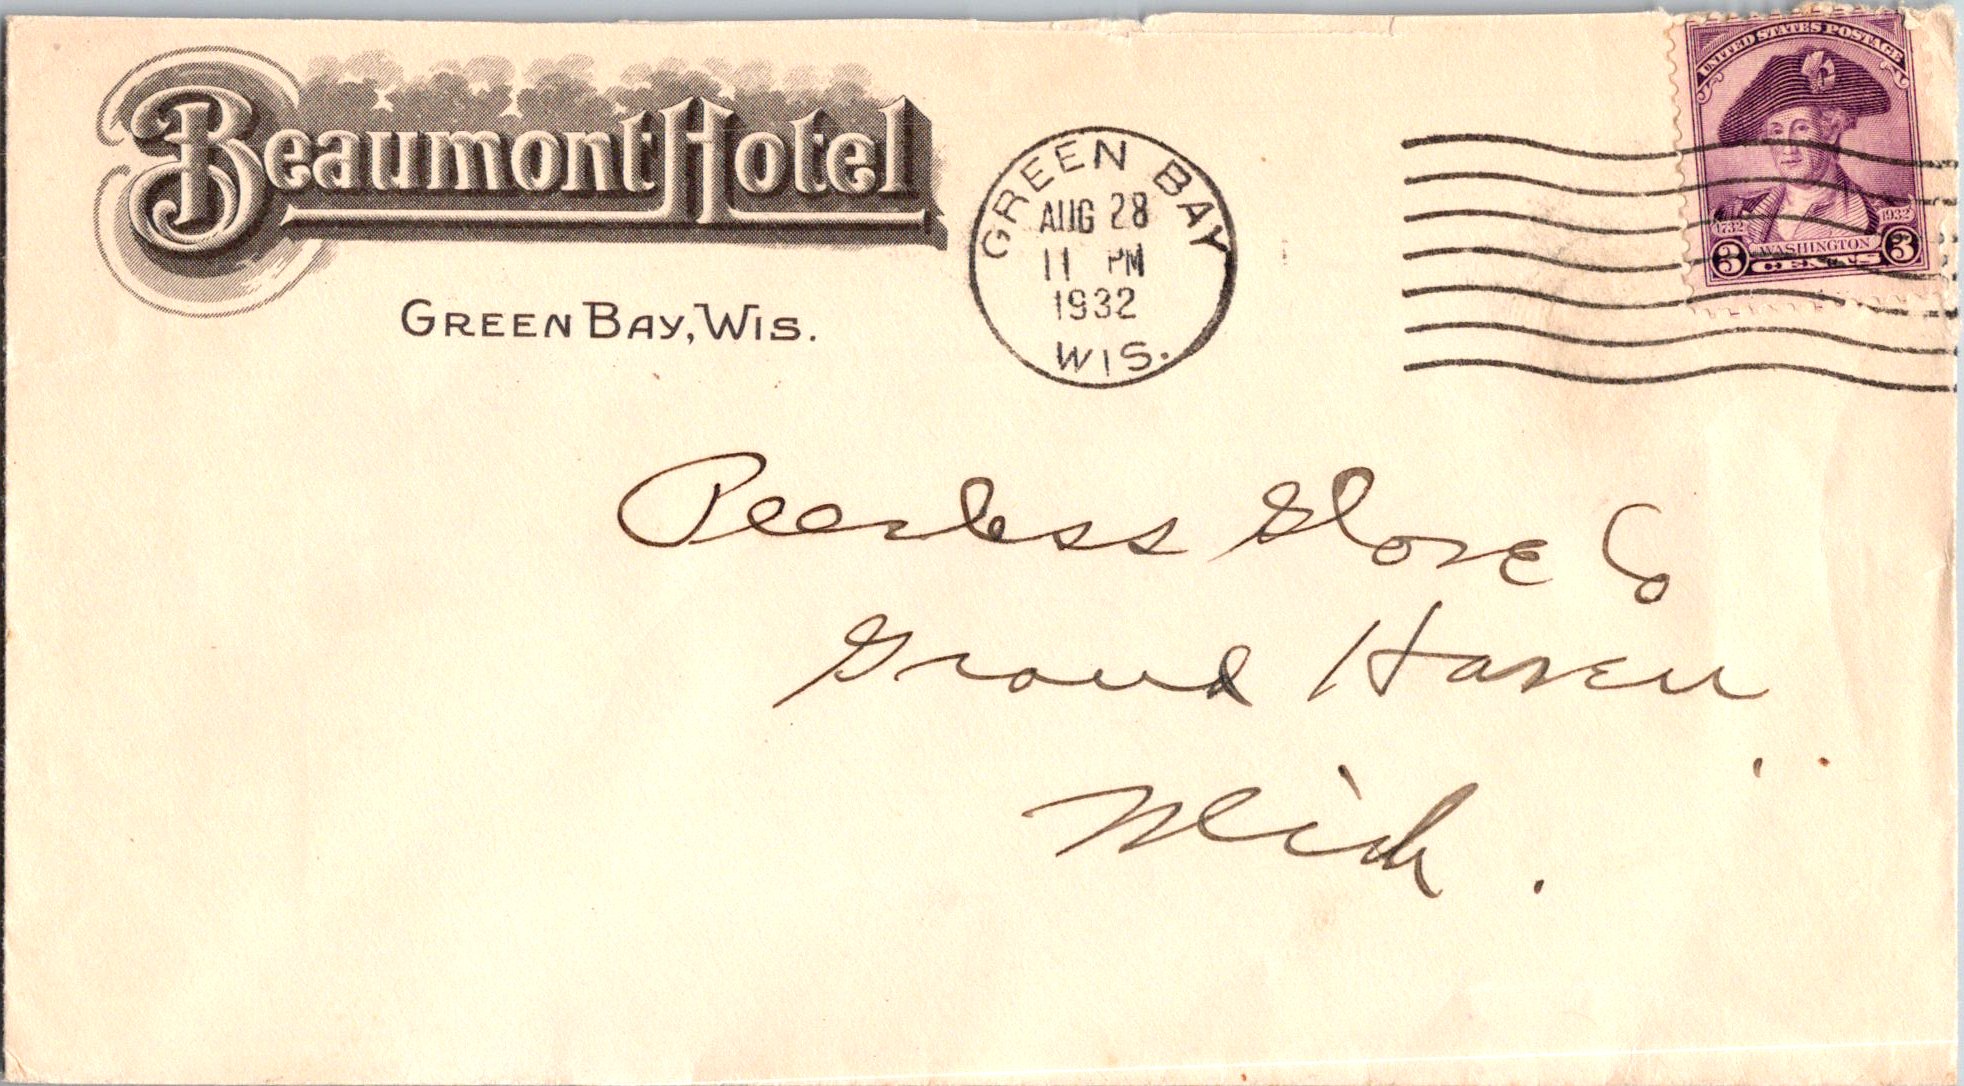 Beaumont Hotel
GREEN BAY, WIS.
GREEN BAY
AUG 28
11 PM
1932
WIS.
UNITED STATES POSTAGE
1732
1932
3 WASHINGTON 3
CENTS
Peerless Glove Co
Grand Haven
Mich.